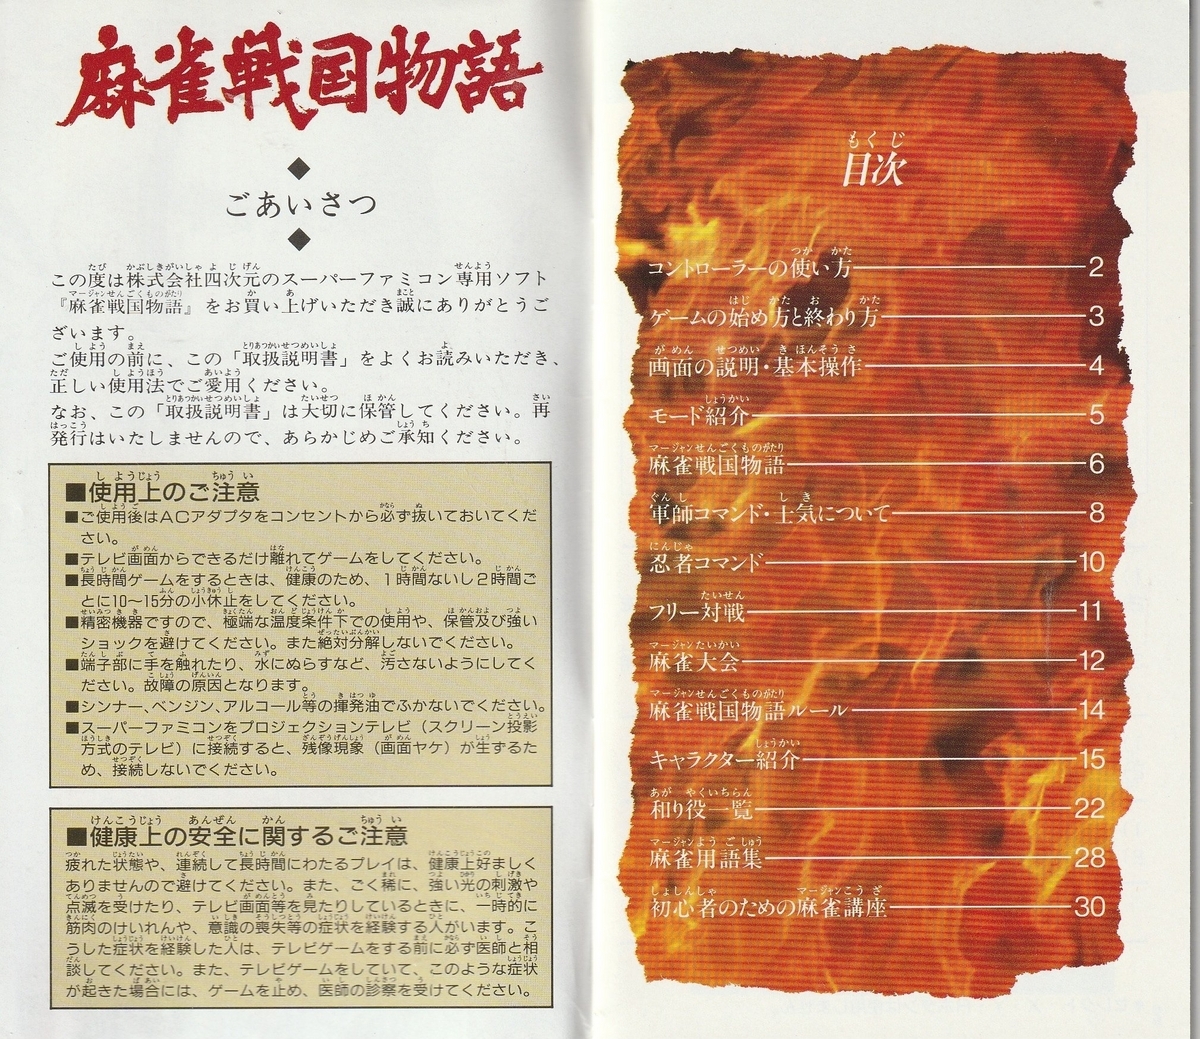 麻雀戦国物語
ごあいさつ
この度は株式会社四次元のスーパーファミコン専用ソフト
『麻雀戦国物語』をお買い上げいただき誠にありがとうご
ざいます。
ご使用の前に、この「取扱説明書」をよくお読みいただき、
正しい使用法でご愛用ください。
なお、この「取扱説明書」は大切に保管してください。再
発行はいたしませんので、あらかじめご承知ください。
■使用上のご注意
■ご使用後はACアダプタをコンセントから必ず抜いておいてくだ
さい。
■テレビ画面からできるだけ離れてゲームをしてください。
■長時間ゲームをするときは、健康のため、1時間ないし2時間ご
とに10〜15分の小休止をしてください。
■精密機器ですので、極端な温度条件下での使用や、保管及び強い
ショックを避けてください。また絶対分解しないでください。
■端子部に手を触れたり、水にぬらすなど、汚さないようにしてく
ださい。故障の原因となります。
■シンナー、ベンジン、アルコール等の揮発油でふかないでください。
■スーパーファミコンをプロジェクションテレビ（スクリーン投影
方式のテレビ）に接続すると、残像現象（画面ヤケ）が生ずるた
め、接続しないでください。
■健康上の安全に関するご注意
疲れた状態や、連続して長時間にわたるプレイは、健康上好ましく
ありませんので避けてください。また、ごく稀に、強い光の刺激や
点滅を受けたり、テレビ画面等を見たりしているときに、一時的に
筋肉のけいれんや、意識の喪失等の症状を経験する人がいます。こ
うした症状を経験した人は、テレビゲームをする前に必ず医師と相
談してください。また、テレビゲームをしていて、このような症状
が起きた場合には、ゲームを止め、医師の診察を受けてください。
もくじ
目次
コントローラーの使い方 2
ゲームの始め方と終わり方 3
画面の説明・基本操作 4
モード紹介 5
麻雀戦国物語 6
軍師コマンド・士気について 8
忍者コマンド 10
フリー対戦 11
麻雀大会 12
麻雀戦国物語ルール 14
キャラクター紹介 15
和り役一覧 22
麻雀用語集 28
初心者のための麻雀講座 30